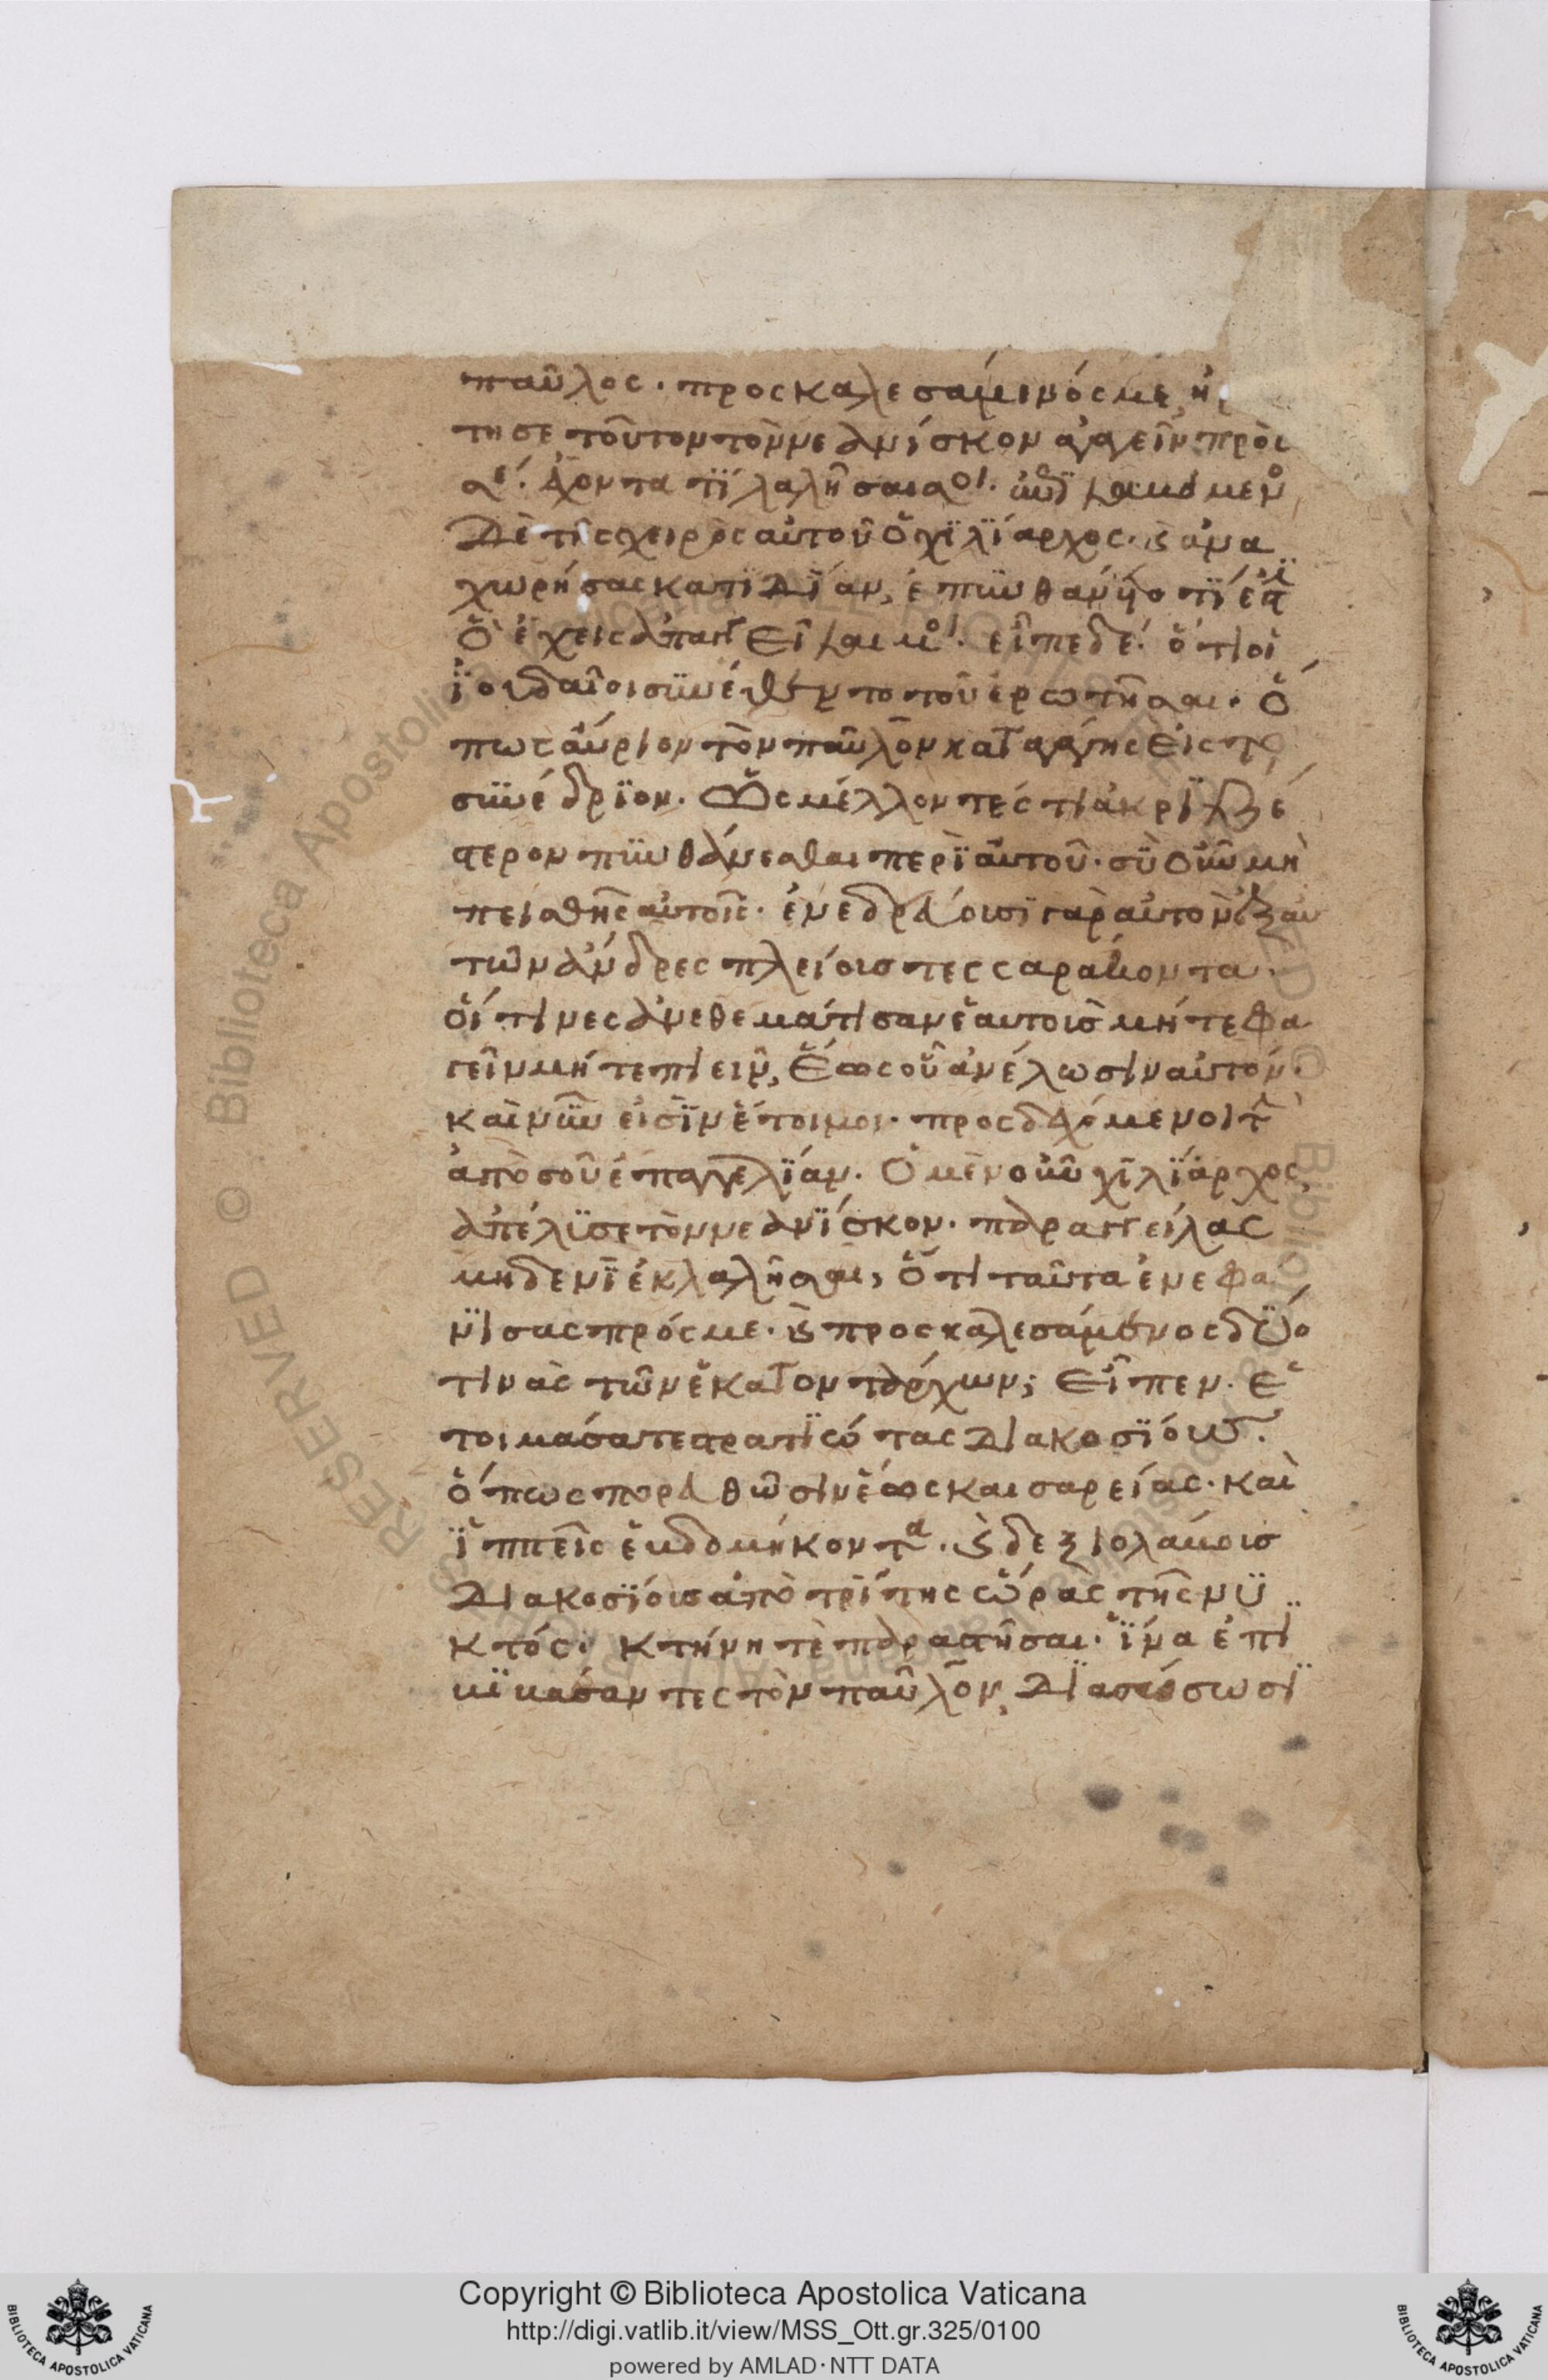 παῦλος. προσκαλεσάμενός με, ἠρ
τησε τοῦτον τὸν νεανίσκον ἀγαγεῖν πρὸς
σέ. ἔχοντα τί λαλῆσαί σοι.
δὲ τῆς χειρὸς αὐτοῦ ὁ χιλίαρχος. καὶ ἀνα
χωρήσας κατιδΐαν, ἐπυνθάνετο τί ἐστιν
ὃ ἔχεις ἀπαγγεῖλαί μοι. εἶπε δέ. ὅτι οἱ
ἰουδαῖοι συνέθεντο τοῦ ἐρωτῆσαι. ὅ
πως αὔριον τὸν παῦλον καταγάγης εἰς τὸ
συνέδριον. ὡς μέλλοντές τι ἀκριβέ
στερον πυνθάνεσθαι περὶ αὐτοῦ. σὺ οὖν μὴ
πεισθῆς αὐτοῖς. ἐνεδρεύουσι γὰρ αὐτὸν ἐξ αυ
τῶν ἄνδρες πλείους τεσσαράκοντα.
οἵτινες ἀνεθεμάτισαν ἑαυτοὺς μήτε φα
γεῖν μήτε πιεῖν, ἕως οὗ ἀνέλωσιν αὐτόν.
καὶ νῦν εἰσὶν ἕτοιμοι. προσδεχόμενοι τὴν
ἀπὸ σοῦ ἐπαγγελΐαν. Ὁ μὲν οὖν χιλΐαρχος
ἀπέλυσε τὸν νεανΐσκον. παραγγείλας
μηδενὶ ἐκλαλῆσαι, ὅτι ταῦτα ἐνεφά
νισας πρός με. καὶ προσκαλεσάμενος δύο
τινὰς τῶν ἑκατοντάρχων, εἶπεν. ἑ
τοιμάσατε στρατιώτας διακοσΐους.
ὅπως πορευθῶσιν ἕως καισαρείας. καὶ
ἱππεῖς ἑβδομήκοντα. καὶ δεξιολάβους
διακοσΐους ἀπὸ τρίτης ὥρας τῆς νυ
κτός. κτήνη τὲ παραστῆσαι. ἵνα ἐπι
βιβάσαντες τὸν παῦλον, διασώσωσι